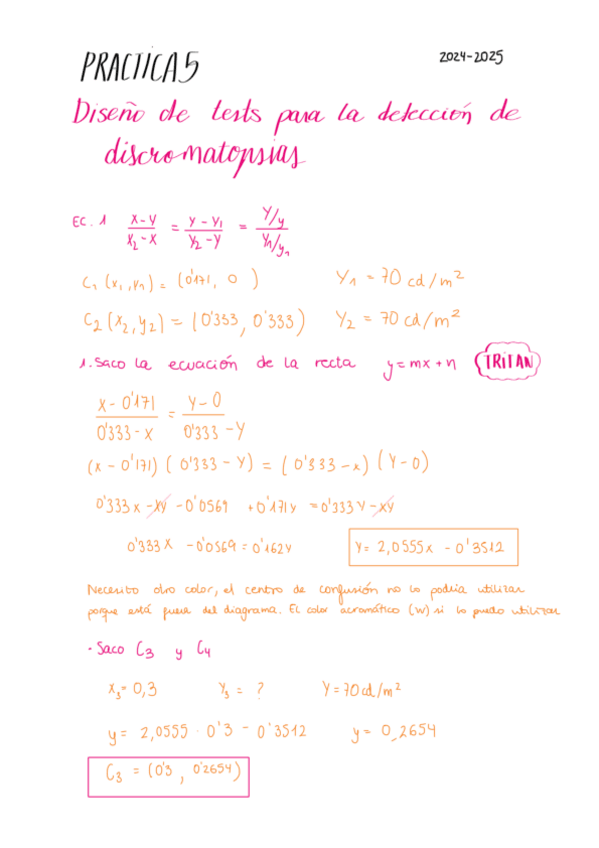 PRACTICA 5
2024-2025
Diseño de tests para la detección de
discromatopsias
EC. 1 x-y / x2-x = y-y1 / y2-y = Y/y / Y1/y1
C1 (x1, y1) = (0'171, 0) Y1 = 70 cd/m²
C2 (x2, y2) = (0'333, 0'333) Y2 = 70 cd/m²
1. Saco la ecuación de la recta y = mx + n TRITAN
x - 0'171 / 0'333 - x = y - 0 / 0'333 - y
(x - 0'171) (0'333 - y) = (0'333 - x) (y - 0)
0'333x - xy - 0'0569 + 0'171y = 0'333y - xy
0'333x - 0'0569 = 0'162y y = 2,0555x - 0'3512
Necesito otro color, el centro de confusión no lo podría utilizar
porque está fuera del diagrama. El color acromático (W) si lo puedo utilizar
· Saco C3 y C4
x3 = 0,3 y3 = ? Y = 70 cd/m²
y = 2,0555 · 0'3 - 0'3512 y = 0,2654
C3 = (0'3, 0'2654)